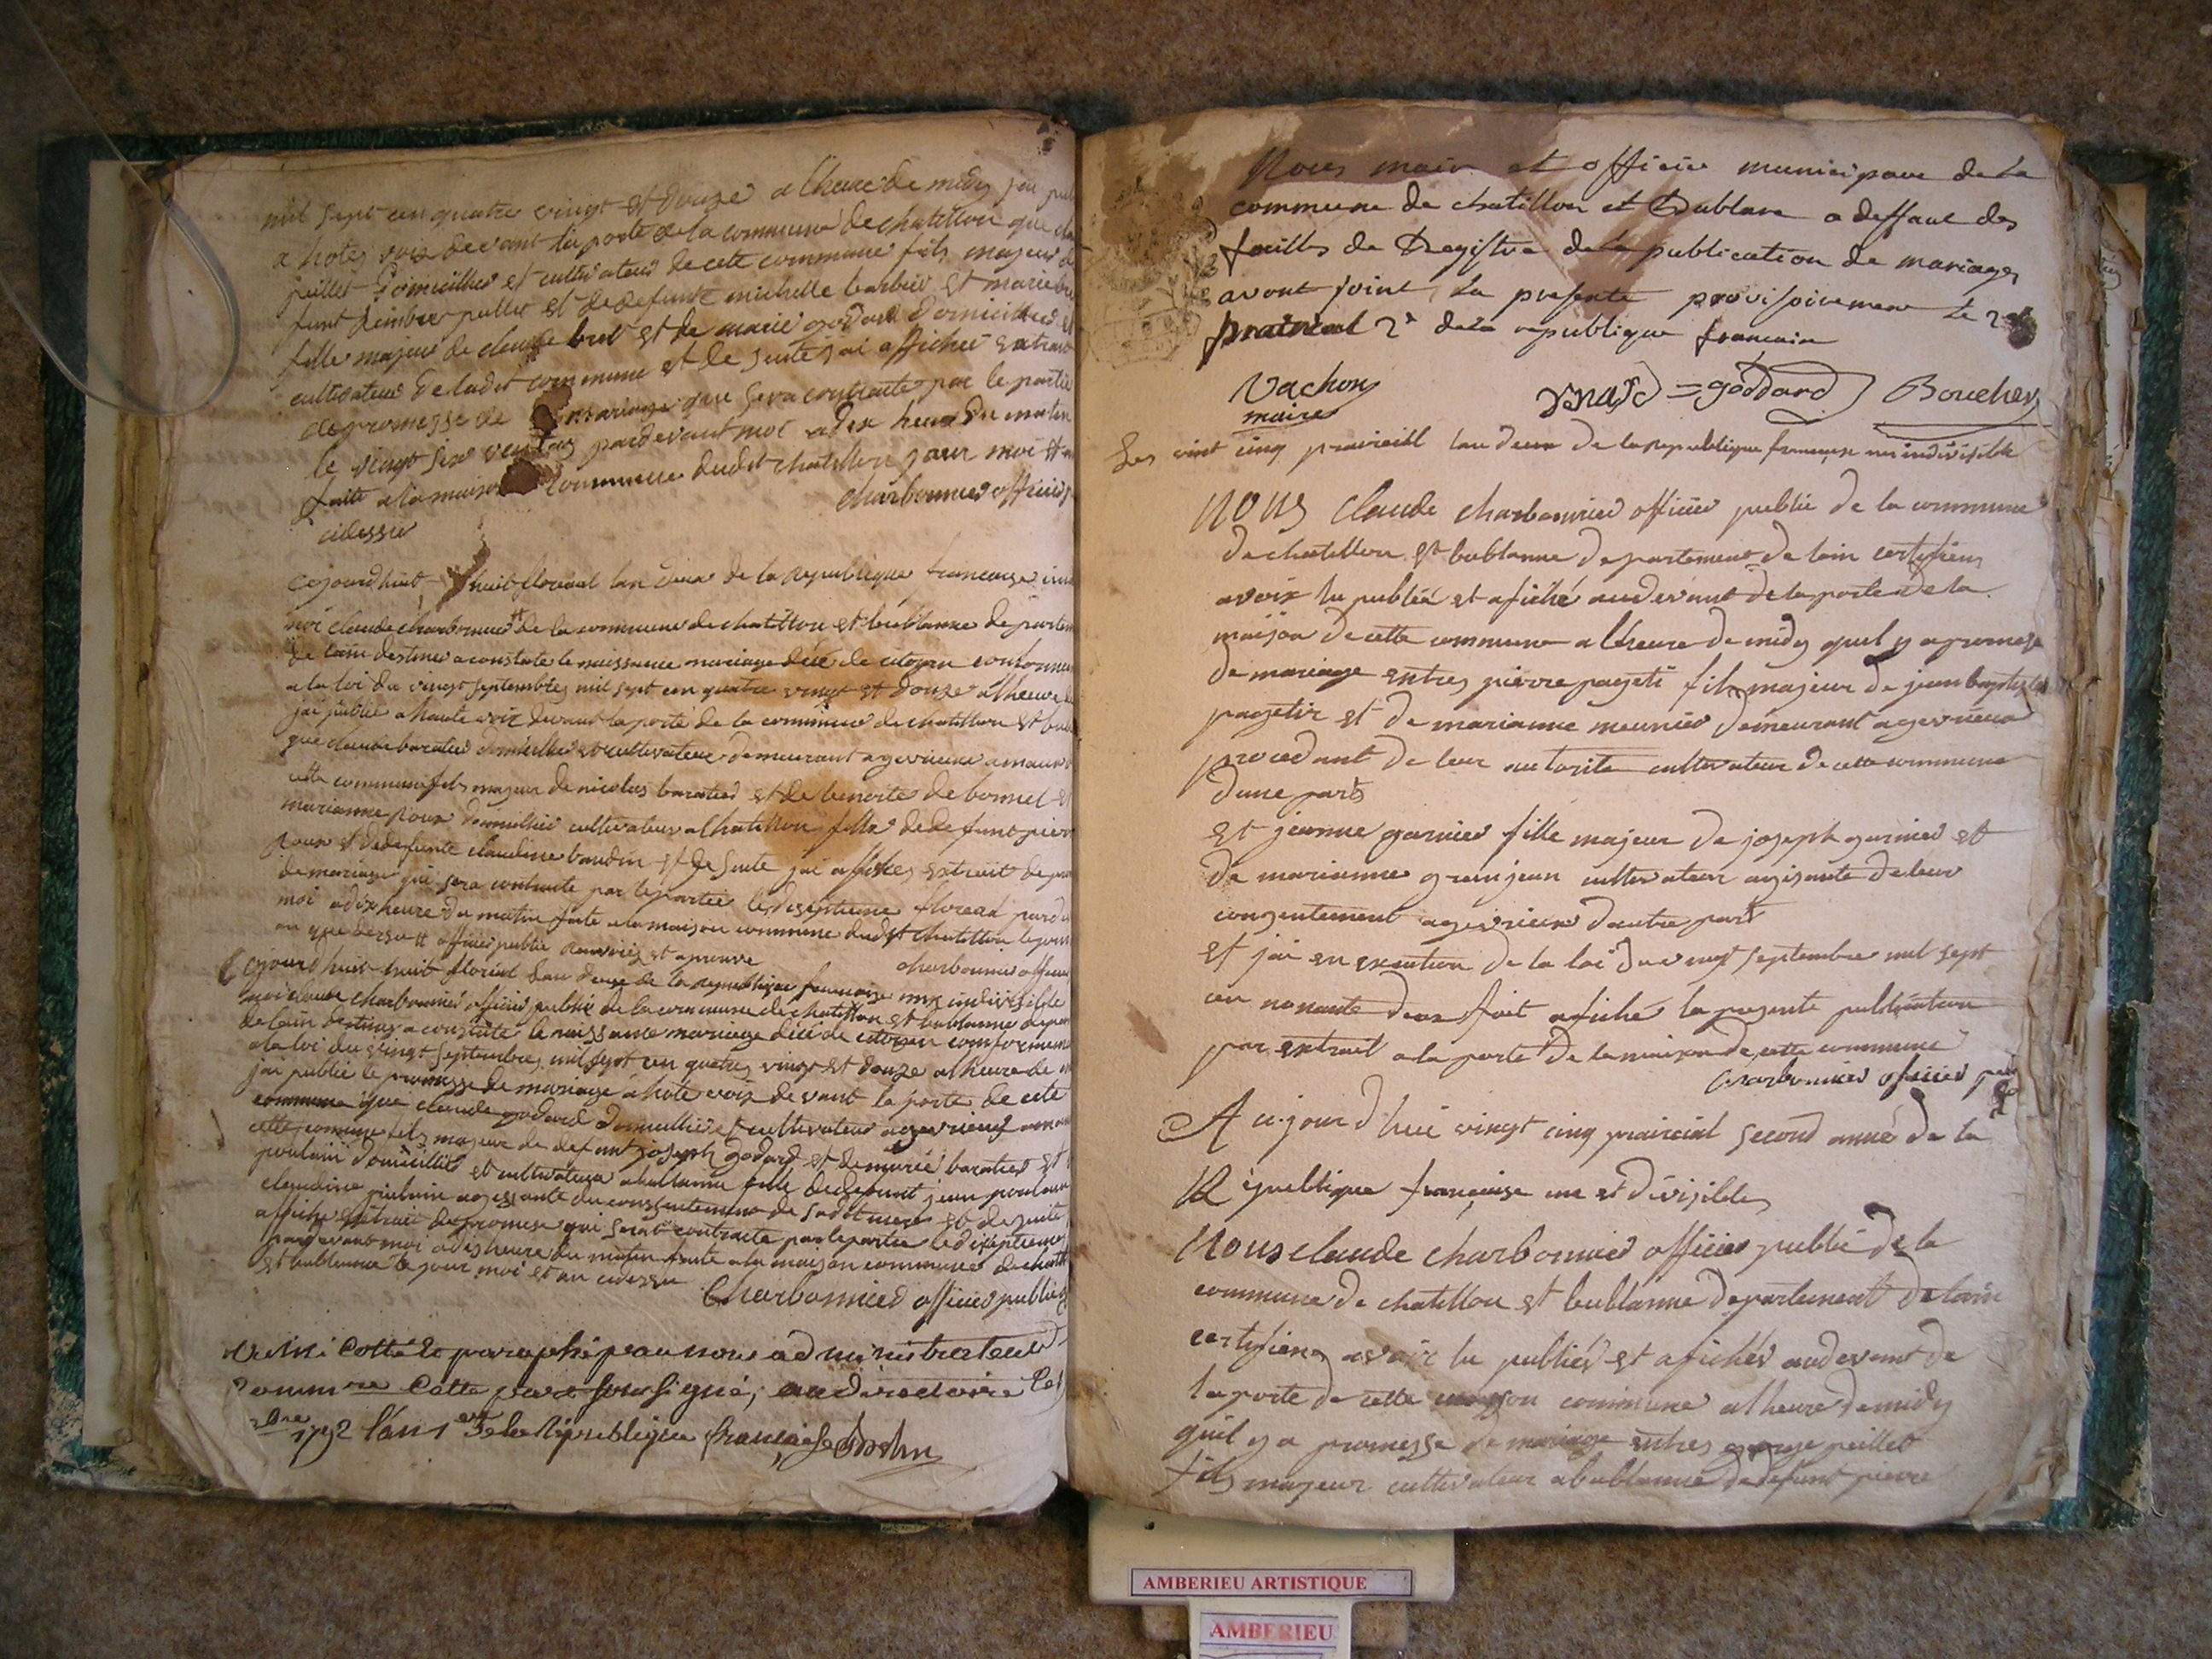 mil sept cen quatre vingt et douze a lheure de midy jai pub
a hotes voix devant la porte de la commune de chatillon que
peillet Domicillies et cultivateur de cete commune fils majeur
funt peillet et de defunte michelle barbier et marie
fille majeur de claude et de marie godard Domicillies
cultivateur de ladit commune et de suite jai affiches extrait
de promesse de mariage que sera contracte par le partie
le vingt six ventos pardevant moi a dix heur du matin
faite a la maison commune dudit chatillon jour moi
charbonnier officier
cidessu
cejourdhuit huit floreal lan deux de la republique francaise
moi claude charbonnier de la commune de chatillon et bublanne departem
de lain destines a constate le naissance mariage décé de citoyen conforme
a la loi du vingt septembres mil sept cen quatre vingt et douze a lheure
jai publie a haute voix devant la porte de la commune de chatillon et
que claude baratier domicillies et cultivateur demeurant a gevrieux
cette commune fils majeur de nicolas baratier et de benoite de bonnel et
marianne roux domicillies cultivateur a chatillon fille de defunt pier
roux et de defunte claudine baudin et de suite jai affiches extrait de
de mariage qui sera contracte par le partie le diseptieme floreal pard
moi a dix heure du matin faite a la maison commune dudit chatillon le jour
an que dessu officier publie et aprouve
charbonnier officier
Cejourdhuit huit floreal lan deux de la republique francaise une indivisible
moi claude charbonnier officier publie de la commune de chatillon et bublanne depar
de lain destines a constate le naissance mariage décé de citoyen conformeme
a la loi du vingt septembres mil sept cen quatres vingt et douze a lheure de
jai publié le promesse de mariage a hote voix devant la porte de cete
commune que claude godard domicillies et cultivateur a gevrieux
cette commune fils majeur de defunt joseph godard et de marie baratier et
poulain domicillies et cultivateur a bublanne fille de defunt jean poulain
claudine agissante du consentement de sadit mere et de suite
affiche extrait de promesse qui serat contracte par le partie le diseptieme
pardevant moi a dis heure du matin faite a la maison commune de chatill
et bublanne le jour moi et an cidessu
Charbonnier officier public
Cotté & paraphé par nous administrateur
soussigné, au directoire
1792 l'an 1er de la République française
Nous maire et officier municipaux de la
commune de chatillon et Bublane a deffaut des
feuilles de Registre de la publication de mariages
avont joint la presente provisoiremen le 2
prairial 2e de la republique francaise
Vachon
maire
goddard Boucher
Les vint cinq prairiaill lan deux de la republique francaise un indivisible
NOUS Claude charbonnier officier publié de la commune
de chatillon et bublanne departement de lain certifiens
avoir lu publiéé et afiché audevant de la porte de la
maison de cette commune a lheure de midy quil y a promesse
de mariage entres pierre pageti fils majeur de jean baptiste
pagetir et de marianne meunier demeurant a gevrieux
procedant de leur autorité cultivateur de cette commune
dune part
et jeanne garnier fille majeur de joseph garnier et
de marianne granjean cultivateur agisante de leur
consentement a gevrieux dautre part
et jai en execution de la loi du vingt septembre mil sept
cen nonante deux fait afiché la presente publication
par extrait a la porte de la maison de cette commune
Charbonnier officier publi
Aujourd'hui vingt cinq prairial second année de la
République française une et divisible
Nous claude charbonnier officier publié de la
commune de chatillon et bublanne departement de lain
certifiens avoir lu publiér et afichér audevant de
la porte de cette maison commune a lheure de midy
quil y a promesse de mariage entres george peillet
fils majeur cultivateur a bublanne de defunt pierre
AMBERIEU ARTISTIQUE
AMBERIEU